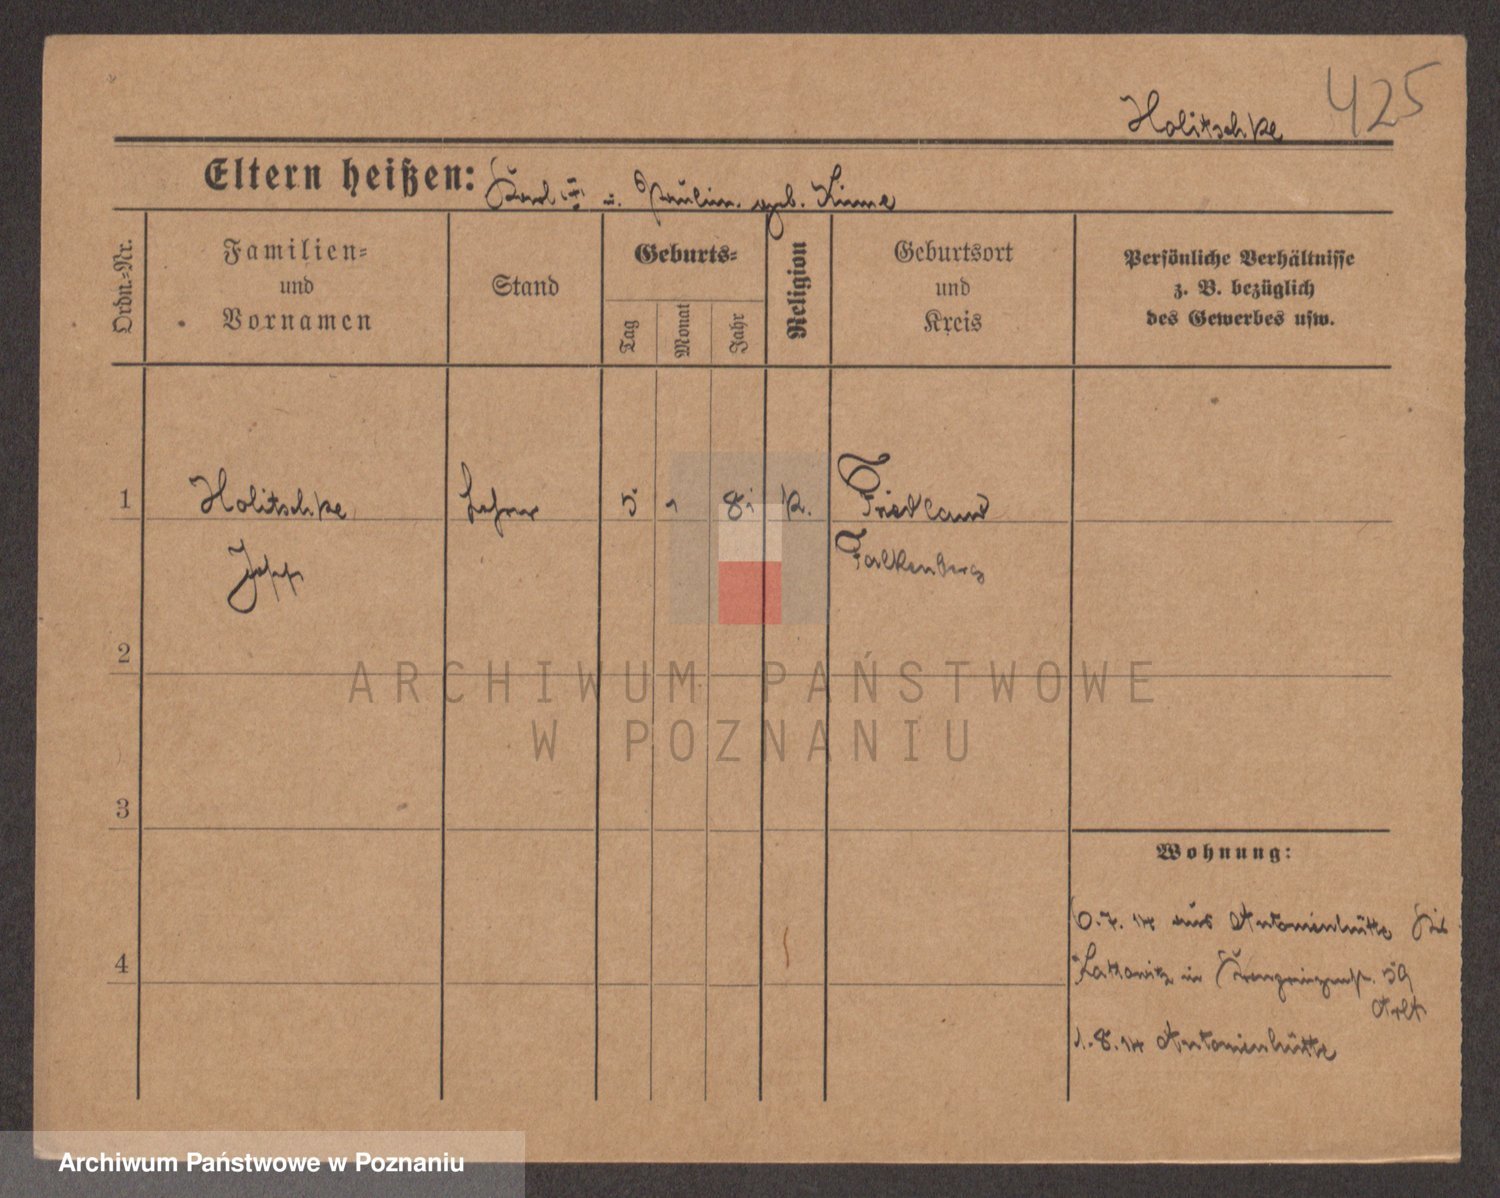 425
Holitschke
Eltern heißen: Karl u. Paulin. geb. Kinne
Ordn.=Nr.
Familien=
und
Vornamen
Stand
Geburts=
Tag
Monat
Jahr
Religion
Geburtsort
und
Kreis
Persönliche Verhältnisse
z. B. bezüglich
des Gewerbes usw.
1 Holitschke Lehrer 5 1 81 K. Friedland
Falkenberg
2
3
4
Wohnung:
6.7.14 aus Antonienhütte
Kattowitz in 59
1.8.14 Antonienhütte
ARCHIWUM PAŃSTWOWE
W POZNANIU
Archiwum Państwowe w Poznaniu